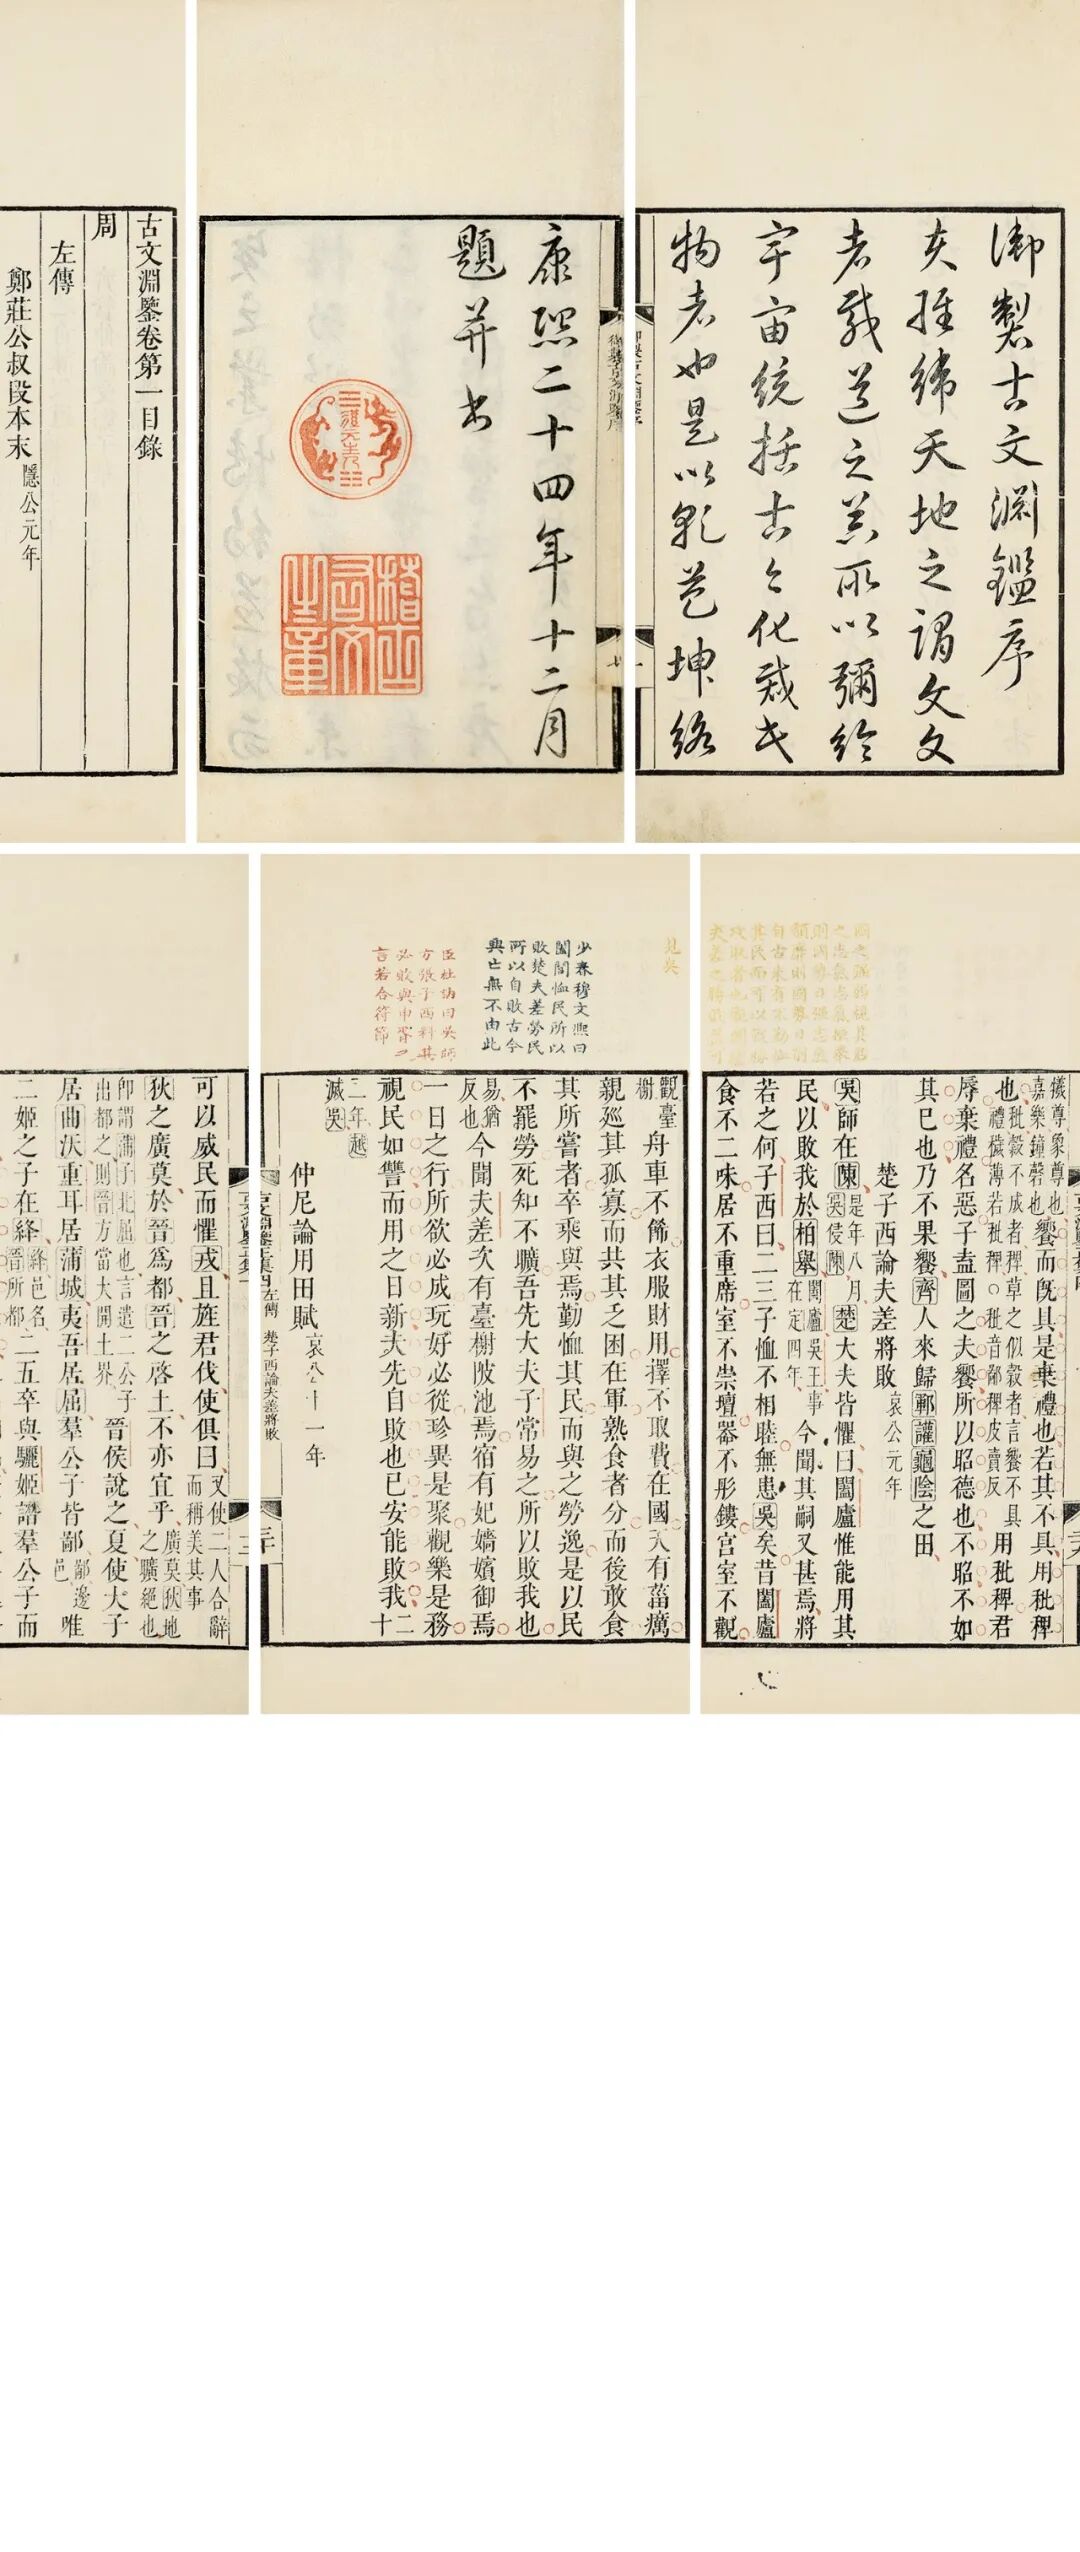 御製古文淵鑑序
夫經緯天地之謂文文
者載道之器所以彌綸
宇宙統括古今化裁民
物者也是以乾苞坤絡
康熙二十四年十二月
題并書
稽古右文之章
古文淵鑒卷第一目錄
周
左傳
鄭莊公叔段本末 隱公元年
儀尊象尊也
嘉樂鐘磬也饗而旣具是棄禮也若其不具用秕稗
也秕穀不成者稗草之似穀者言饗不具
禮穢薄若秕稗○秕音鄙稗皮賣反用秕稗君
辱棄禮名惡子盍圖之夫饗所以昭德也不昭不如
其已也乃不果饗齊人來歸鄆讙龜陰之田
楚子西論夫差將敗 哀公元年
吳師在陳 是年八月吳侵陳 楚大夫皆懼曰闔廬惟能用其
民以敗我於柏舉 闔廬吳王事在定四年 今聞其嗣又甚焉將
若之何子西曰二三子恤不相睦無患吳矣昔闔廬
食不二味居不重席室不崇壇器不彤鏤宮室不觀
見吳
少泰穆文熙曰
闔閭恤民所以
敗楚夫差勞民
所以自敗古今
興亡無不由此
臣杜訥曰吳師
方張子西料其
必敗與申胥之
言若合符節
觀臺榭 舟車不飾衣服財用擇不取費在國天有菑癘
親巡其孤寡而共其乏困在軍熟食者分而後敢食
其所嘗者卒乘與焉勤恤其民而與之勞逸是以民
不罷勞死知不曠吾先大夫子常易之所以敗我也
易猶反也 今聞夫差次有臺榭陂池焉宿有妃嬙嬪御焉
一日之行所欲必成玩好必從珍異是聚觀樂是務
視民如讐而用之日新夫先自敗也已安能敗我 二十
二年越滅吳
仲尼論用田賦 哀公十一年
古文淵鑒正集 左傳 楚子西論夫差將敗
可以威民而懼戎且旌君伐使俱曰 又使二人合辭而稱美其事
狄之廣莫於晉爲都晉之啓土不亦宜乎 廣莫狄地之曠絕也
卽謂蒲子北屈也言遣二公子出都之則晉方當大開土界 晉侯說之夏使大子
居曲沃重耳居蒲城夷吾居屈羣公子皆鄙 鄙邊邑 唯
二姬之子在絳 絳邑名晉所都 二五卒與驪姬譖羣公子而